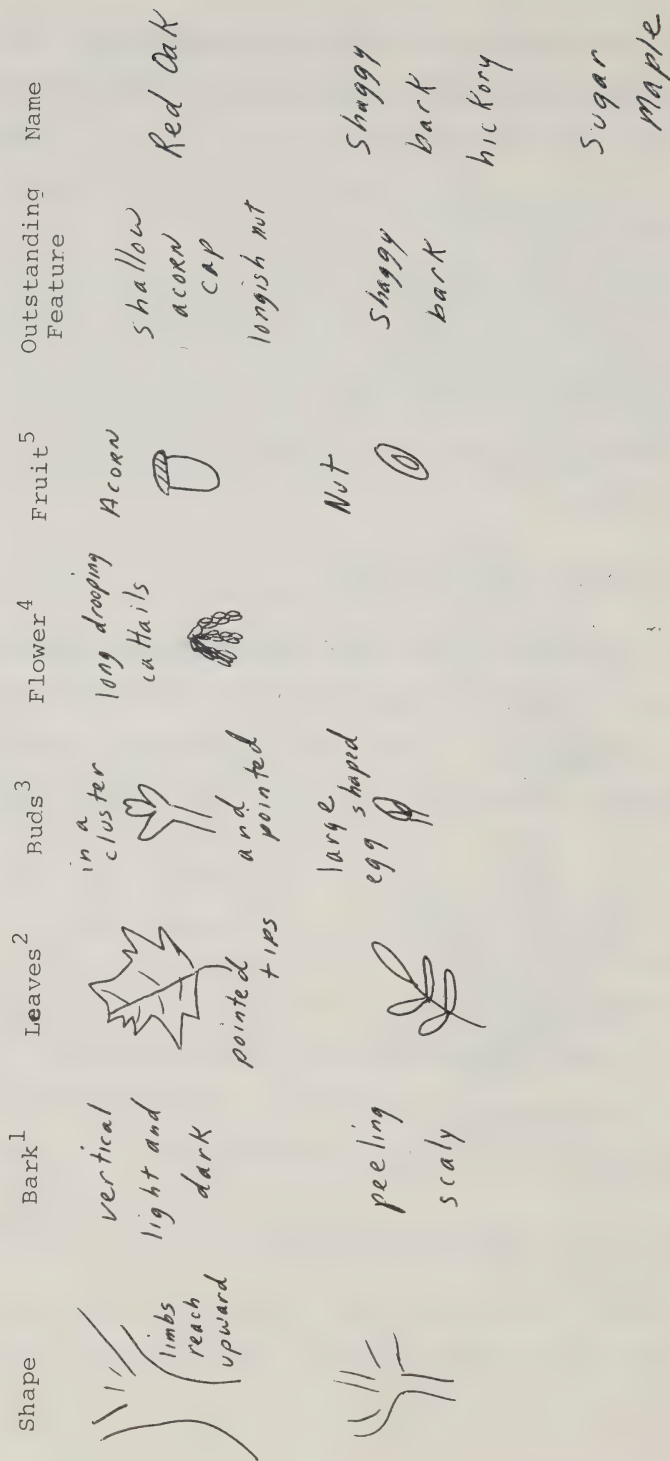 Shape Bark1 Leaves2 Buds3 Flower4 Fruit5 Outstanding Feature Name
limbs
reach
upward
vertical
light and
dark
pointed
tips
in a
cluster
and
pointed
long drooping
cattails
Acorn
shallow
acorn
cap
longish nut
Red Oak
peeling
scaly
large
egg shaped
Nut
Shaggy
bark
Shaggy
bark
hickory
Sugar
Maple